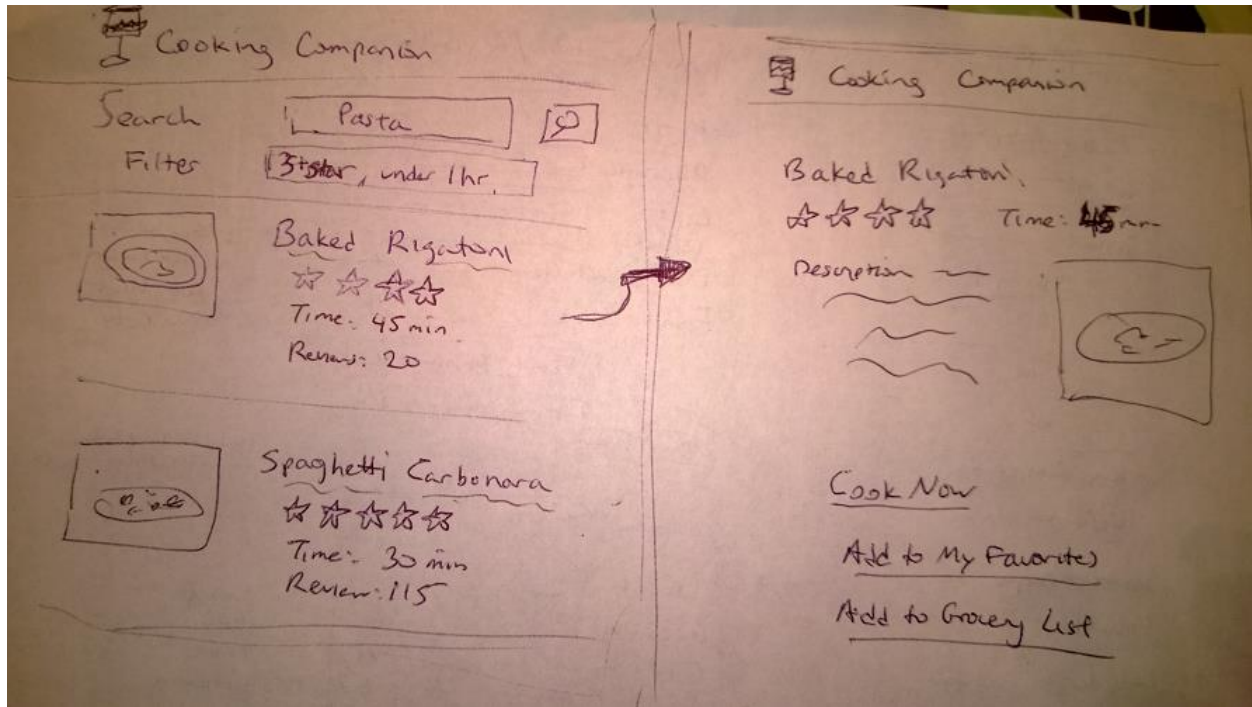 Cooking Companion
Search Pasta
Filter 3+ star, under 1hr.
Baked Rigatoni
Time: 45 min
Reviews: 20
Spaghetti Carbonara
Time: 30 min
Review: 115
Cooking Companion
Baked Rigatoni
Time: 45 min
Description
Cook Now
Add to My Favorites
Add to Grocery List